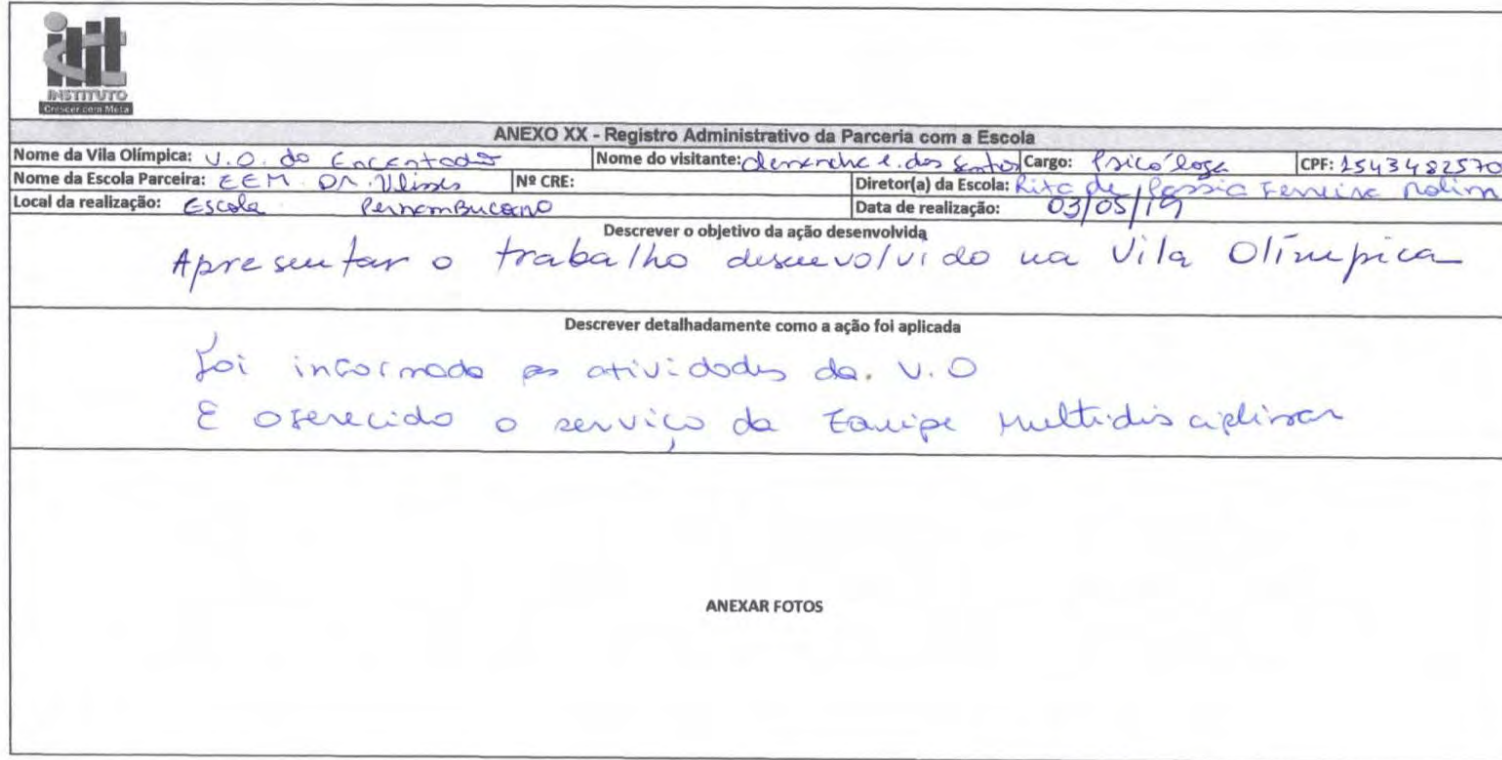 INSTITUTO
Crescer com Meta
ANEXO XX - Registro Administrativo da Parceria com a Escola
Nome da Vila Olímpica: V.O. do Encantado Nome do visitante: e. dos Santos Cargo: Psicóloga CPF: 1543482570
Nome da Escola Parceira: EEM DR. Ulisses Nº CRE: Diretor(a) da Escola: Rita de Cassia Ferreira Rolim
Local da realização: Escola Pernambucano Data de realização: 03/05/19
Descrever o objetivo da ação desenvolvida
Apresentar o trabalho desenvolvido na Vila Olímpica
Descrever detalhadamente como a ação foi aplicada
foi informado as atividades da. V.O
E oferecido o serviço da Equipe Multidisciplinar
ANEXAR FOTOS